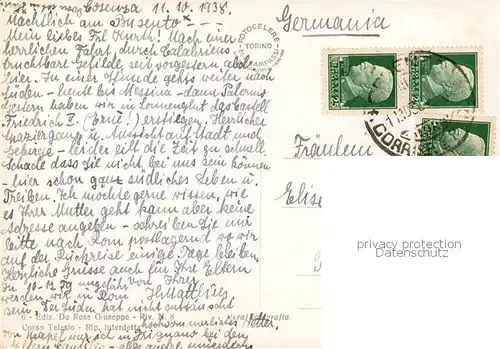 Cosenza 11.10.1938
Nächtlich am Busento
Mein liebes Frl. Kyrth! Nach einer
herrlichen Fahrt durch Calabriens
fruchtbare Gefilde, seit vorgestern abd.
hier. In einer Stunde gehts weiter nach
Süden - heute bis Messina - dann Palermo
gestern haben wir in Sonnenglut das Castell
Friedrich II. erstiegen. Herrlicher
Spaziergang u. Aussicht auf Stadt und
Gebirge - leider eilt die Zeit zu schnell.
Schade dass Sie nicht bei uns sein können
- hier schon ganz südliches Leben u.
Treiben. Ich möchte gerne wissen, wie
es Ihrer Mutter geht kann aber keine
Adresse angeben - schreiben Sie mir
bitte nach Rom postlagernd wo wir
auf der Rückreise einige Tage bleiben.
Herrliche Grüsse auch für Ihre Eltern
In 10-12 Tg ungefähr von Ihrer
werden wir in Rom
sein. Der Süden hat mich
war ich in bei den
FOTOCELERE
TORINO
Germania
Fräulein
Elise
8 - Ediz. De Rose Giuseppe - Riv. N. 8
Corso Telesio - Rip. Interdetta
Vera Fotografia
privacy protection
Datenschutz